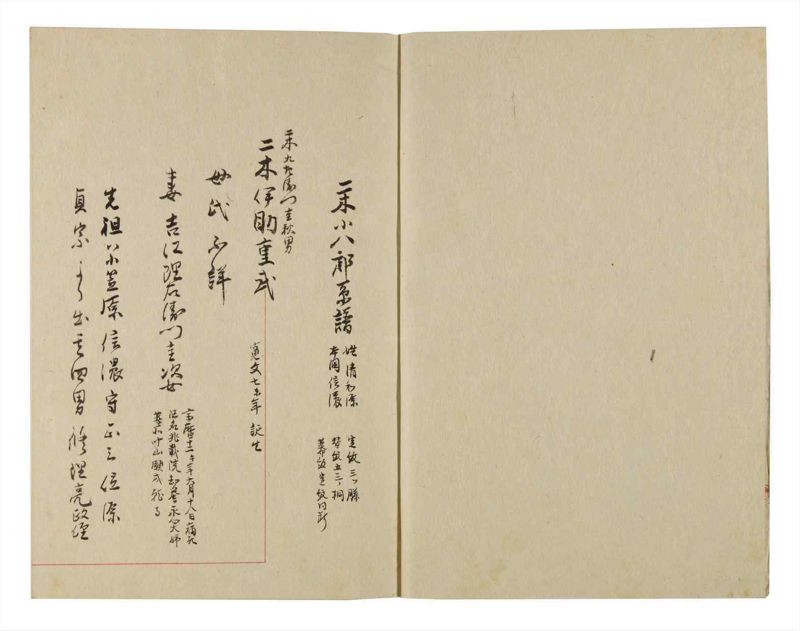 二木小八郎系譜
姓清和源
本国信濃
定紋三ッ藤
替紋五三ノ桐
幕紋定紋同断
二木九左衛門重秋男
二木伊助重武
寛文七未年誕生
母氏不詳
妻吉江理右衛門圭次女
宝暦十二午年六月十八日病死
法名
先祖ハ小笠原信濃守正三位源
貞宗ヨリ出其四男修理亮政経